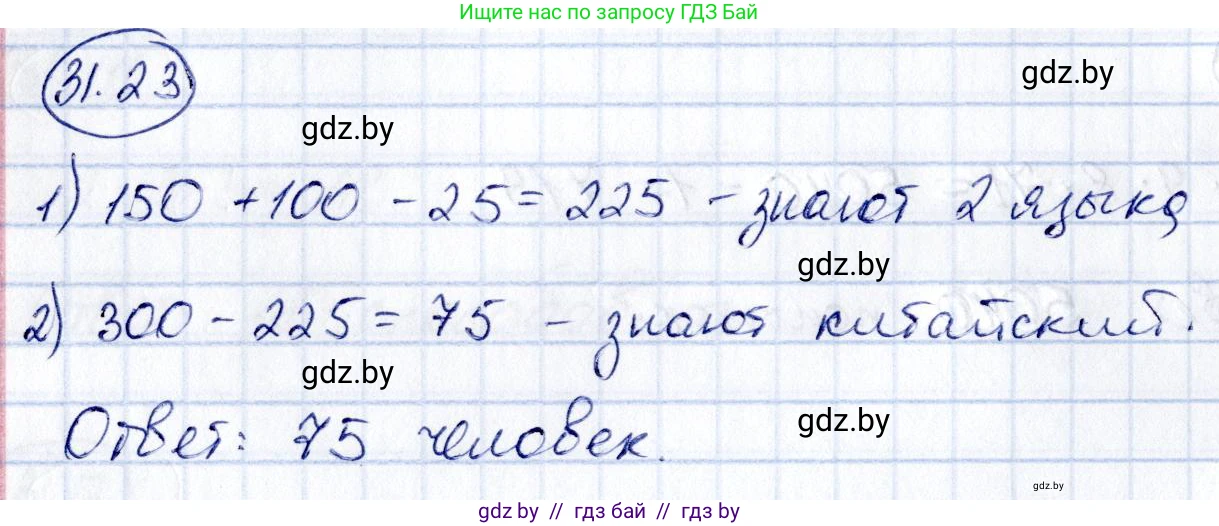 Ищите нас по запросу ГДЗ Бай
31.23
gdz.by
gdz.by
1) 150 + 100 - 25 = 225 - знают 2 языка
gdz.by
2) 300 - 225 = 75 - знают китайский.
gdz.by
gdz.by
Ответ: 75 человек.
gdz.by
gdz.by // гдз бай // гдз by